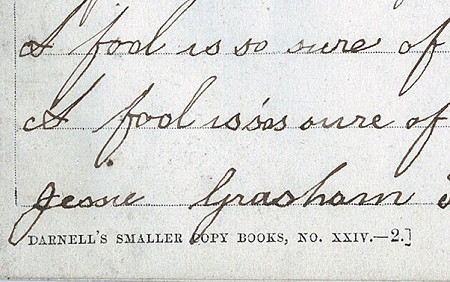 A fool is so sure of
A fool is so sure of
Jessie Grasham
DARNELL'S SMALLER COPY BOOKS, NO. XXIV.—2.]